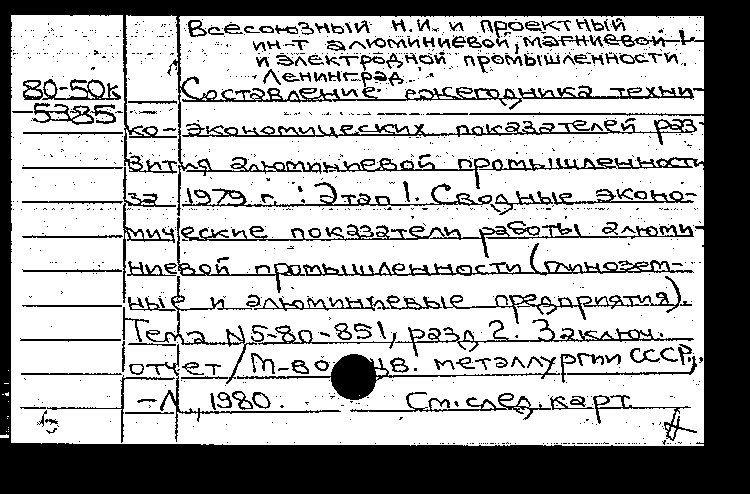 Всесоюзный н.и. и проектный
ин-т алюминиевой, магниевой
и электродной промышленности.
Ленинград.
80-50к Составление ежегодника техни-
5385
ко-экономических показателей раз-
вития алюминиевой промышленности
за 1979 г. : Этап 1. Сводные эконо-
мические показатели работы алюми-
ниевой промышленности (глинозем-
ные и алюминиевые предприятия).
Тема N5-80-851, разд 2. Заключ.
отчет / М-во цв. металлургии СССР,
-Л., 1980. См. след. карт.